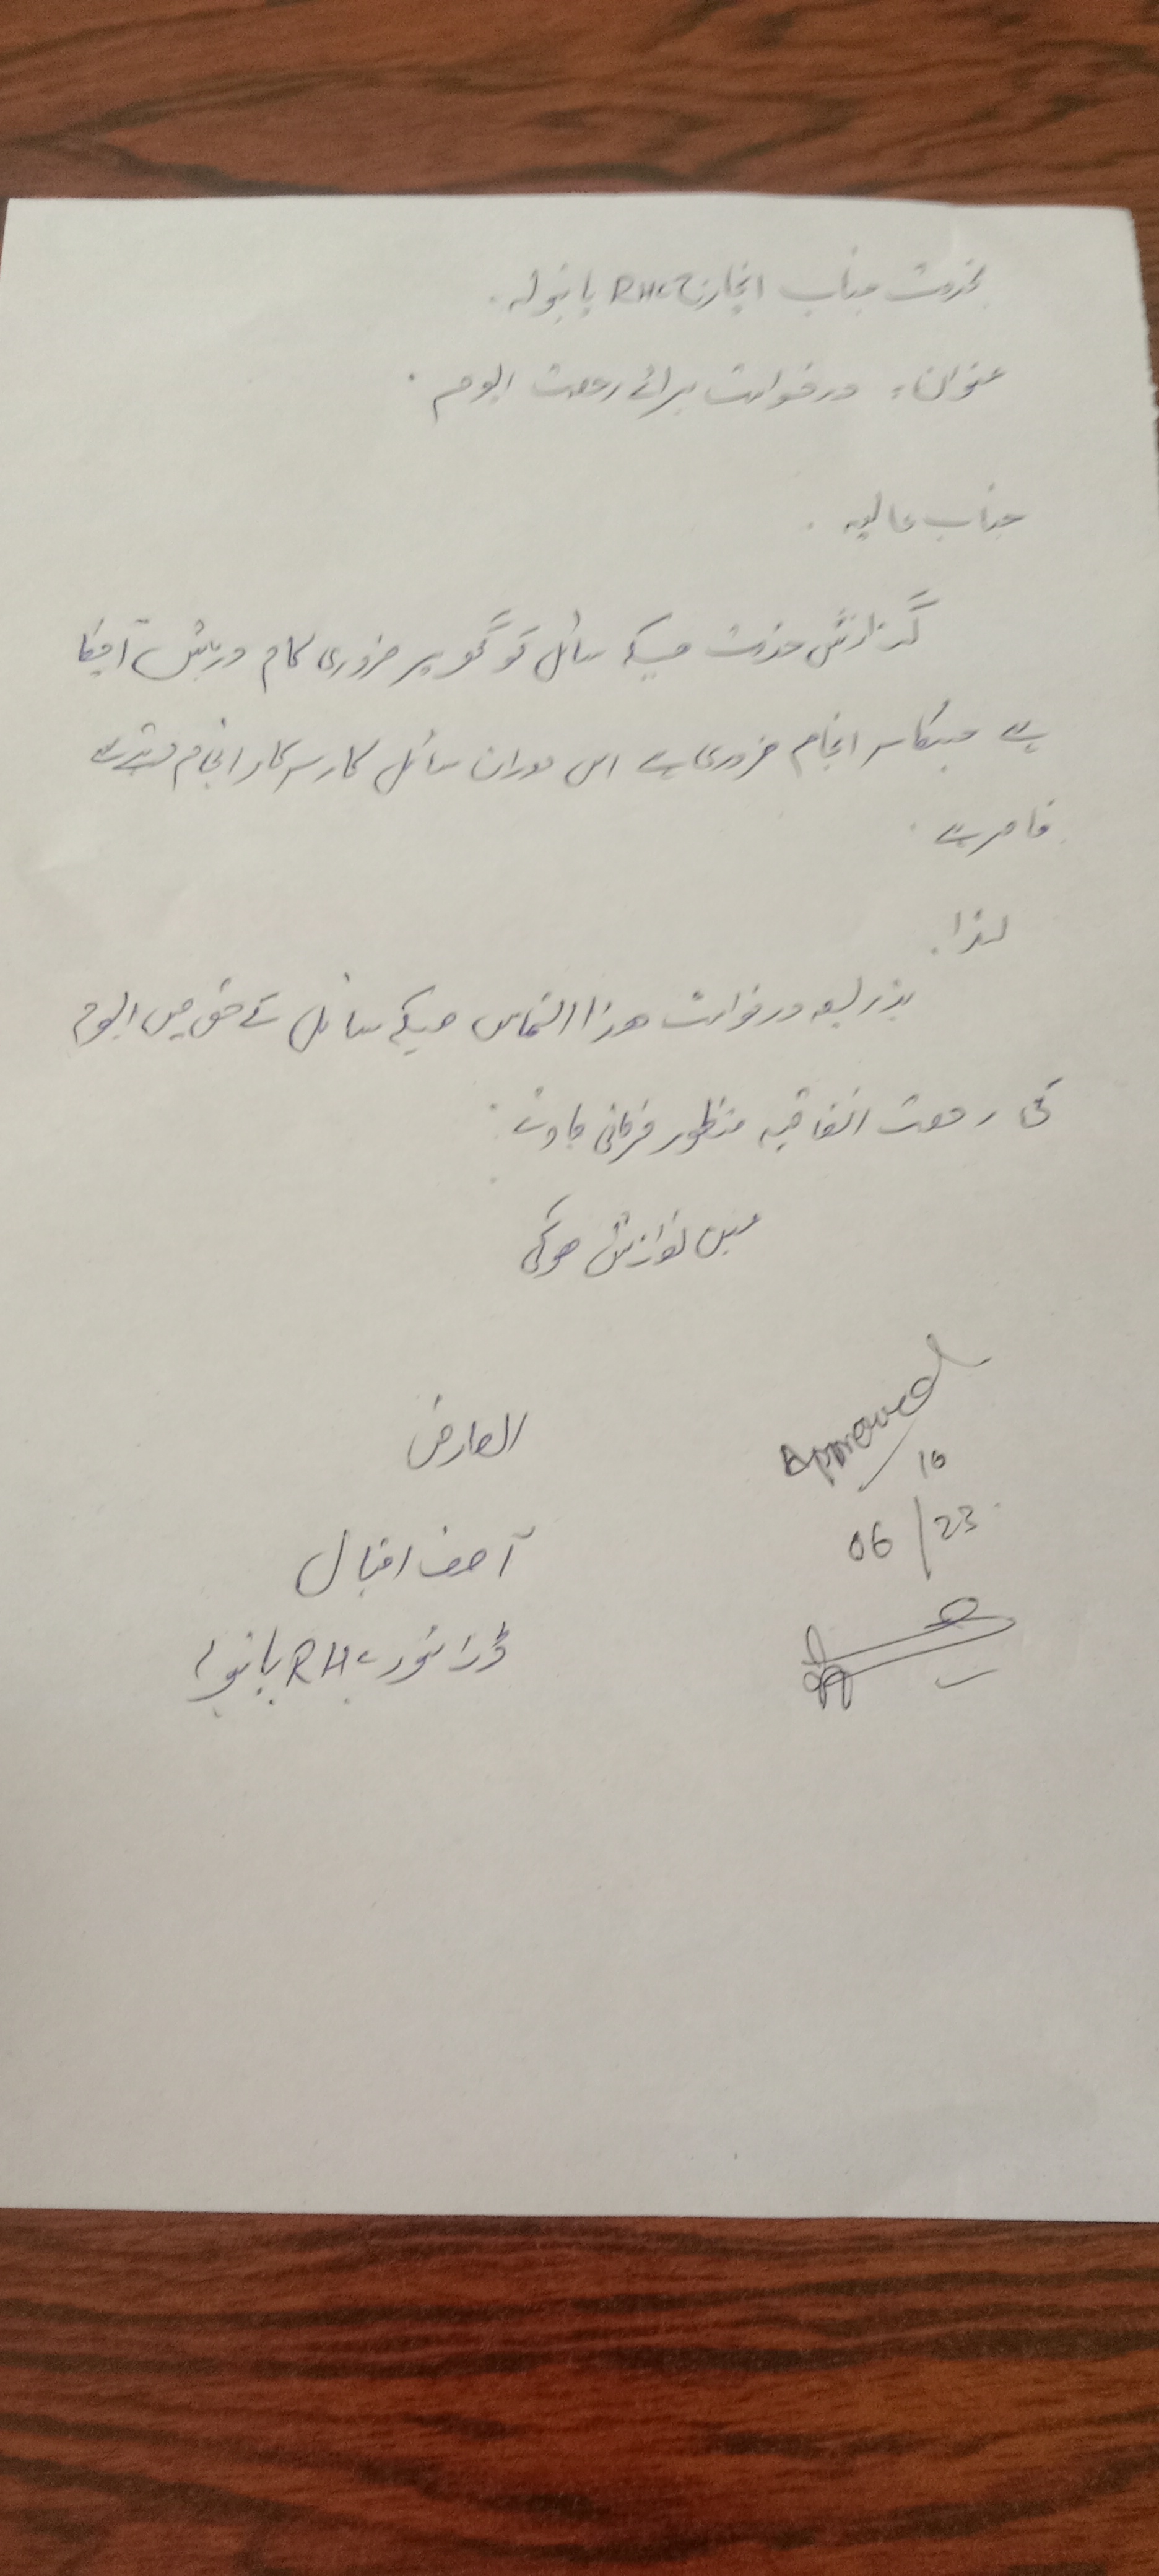 بخدمت جناب انچارج RHC پانپولہ۔
عنوان: درخواست برائے رخصت الیوم۔
جناب عالیہ۔
گذارش خدمت ہیکہ سائل کو گھو پر ضروری کام درپیش آچکا
ہے جسکا سر انجام ضروری ہے اس دوران سائل کار سرکار انجام دینے سے
قاصر ہے۔
لہذا۔
بذریعہ درخواست ھذا التماس ہیکہ سائل کے حق میں الیوم
کی رخصت اتفاقیہ منظور فرمائی جاوے۔
عین نوازش ھوگی
العارض
آصف اقبال
ڈرائیور RHC
Approved
16
06/23